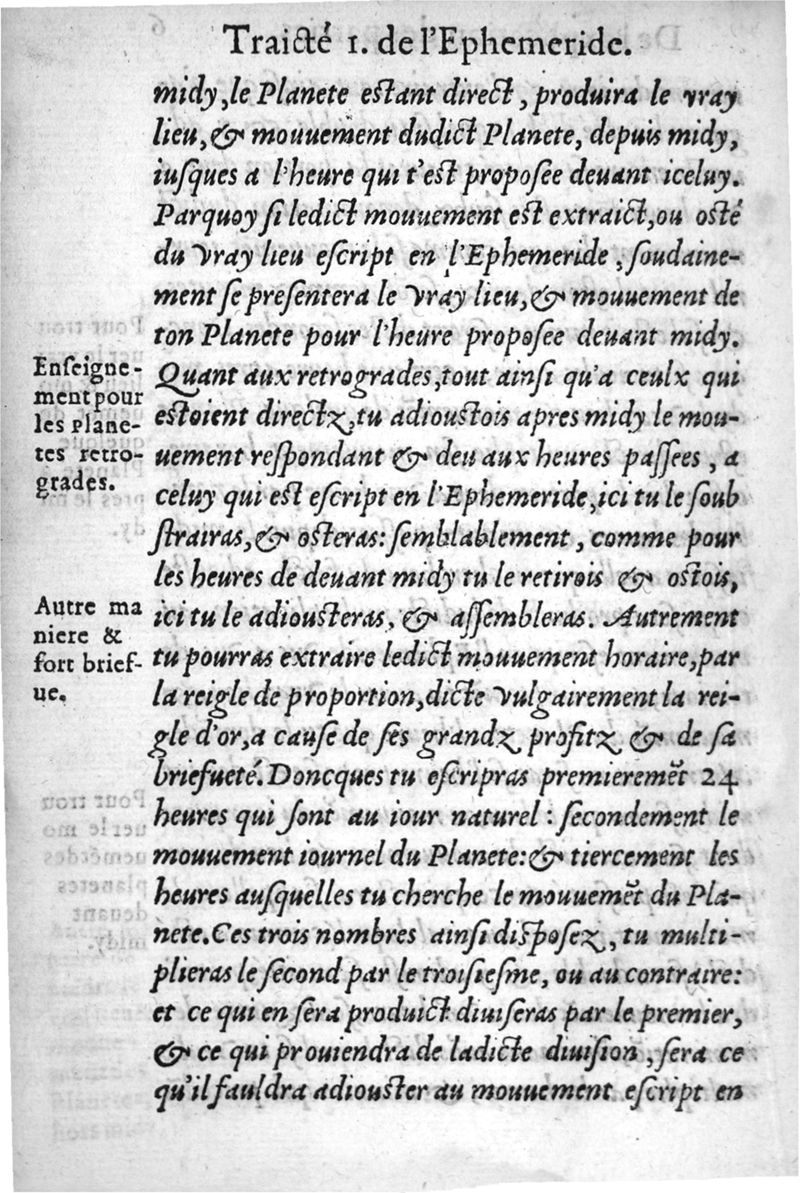 Traicté 1. de l'Ephemeride.
midy, le Planete eſtant direct, produira le vray
lieu, & mouuement dudict Planete, depuis midy,
iuſques a l'heure qui t'eſt propoſee deuant iceluy.
Parquoy ſi ledict mouuement eſt extraict, ou oſté
du vray lieu eſcript en l'Ephemeride, ſoudaine-
ment ſe preſentera le vray lieu, & mouuement de
ton Planete pour l'heure propoſee deuant midy.
Enſeigne-
ment pour
les Plane-
tes retro-
grades.
Quant aux retrogrades, tout ainſi qu'a ceulx qui
eſtoient directz, tu adiouſtois apres midy le mou-
uement reſpondant & deu aux heures paſſees, a
celuy qui eſt eſcript en l'Ephemeride, ici tu le ſoub
ſtrairas, & oſteras: ſemblablement, comme pour
les heures de deuant midy tu le retirois & oſtois,
Autre ma
niere &
fort brief-
ue.
ici tu le adiouſteras, & aſſembleras. Autrement
tu pourras extraire ledict mouuement horaire, par
la reigle de proportion, dicte vulgairement la rei-
gle d'or, a cauſe de ſes grandz profitz & de ſa
briefueté. Doncques tu eſcripras premieremēt 24
heures qui ſont au iour naturel: ſecondement le
mouuement iournel du Planete: & tiercement les
heures auſquelles tu cherche le mouuemēt du Pla-
nete. Ces trois nombres ainſi diſpoſez, tu multi-
plieras le ſecond par le troiſieſme, ou au contraire:
et ce qui en ſera produict diuiſeras par le premier,
& ce qui prouiendra de ladicte diuiſion, ſera ce
qu'il fauldra adiouſter au mouuement eſcript en